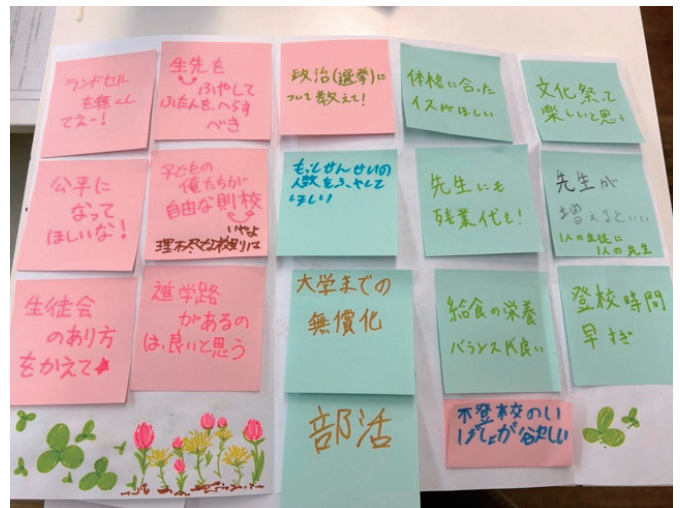 ランドセル
を無くし
てえー!
生先を
ふやして
ふたんを、へらす
べき
政治(選挙)に
ついて教えて!
体格に合った
イスがほしい
文化祭って
楽しいと思う
公平に
なって
ほしいな!
子どもの
俺たちが
自由な則校
いやよ
理不尽な校則は
もっとせんせいの
人数をふやして
ほしい
先生にも
残業代を!
先生が
増えるといい
1人の生徒に
1人の先生
生徒会
のあり方
をかえて
進学路
があるの
は、良いと思う
大学までの
無償化
給食の栄養
バランスが良い
登校時間
早すぎ
部活
不登校のい
ばしょが欲しい